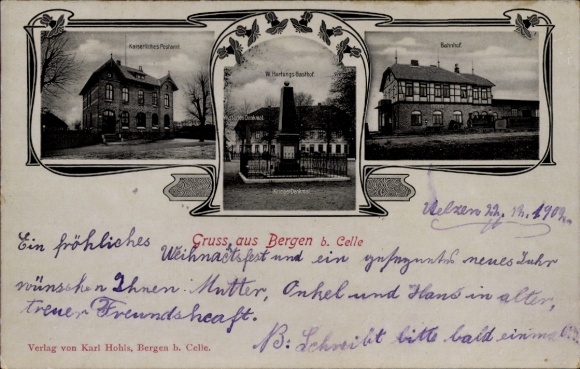 Kaiserliches Postamt.
W. Hartungs Gasthof.
Bahnhof.
Krieger-Denkmal.
Gruss aus Bergen b. Celle
Uelzen 22. 12. 1902.
Ein fröhliches Weihnachtsfest und ein gesegnetes neues Jahr
wünschen Ihnen: Mutter, Onkel und Hans in alter,
treuer Freundschaft.
NB: Schreibt bitte bald einmal
Verlag von Karl Hohls, Bergen b. Celle.